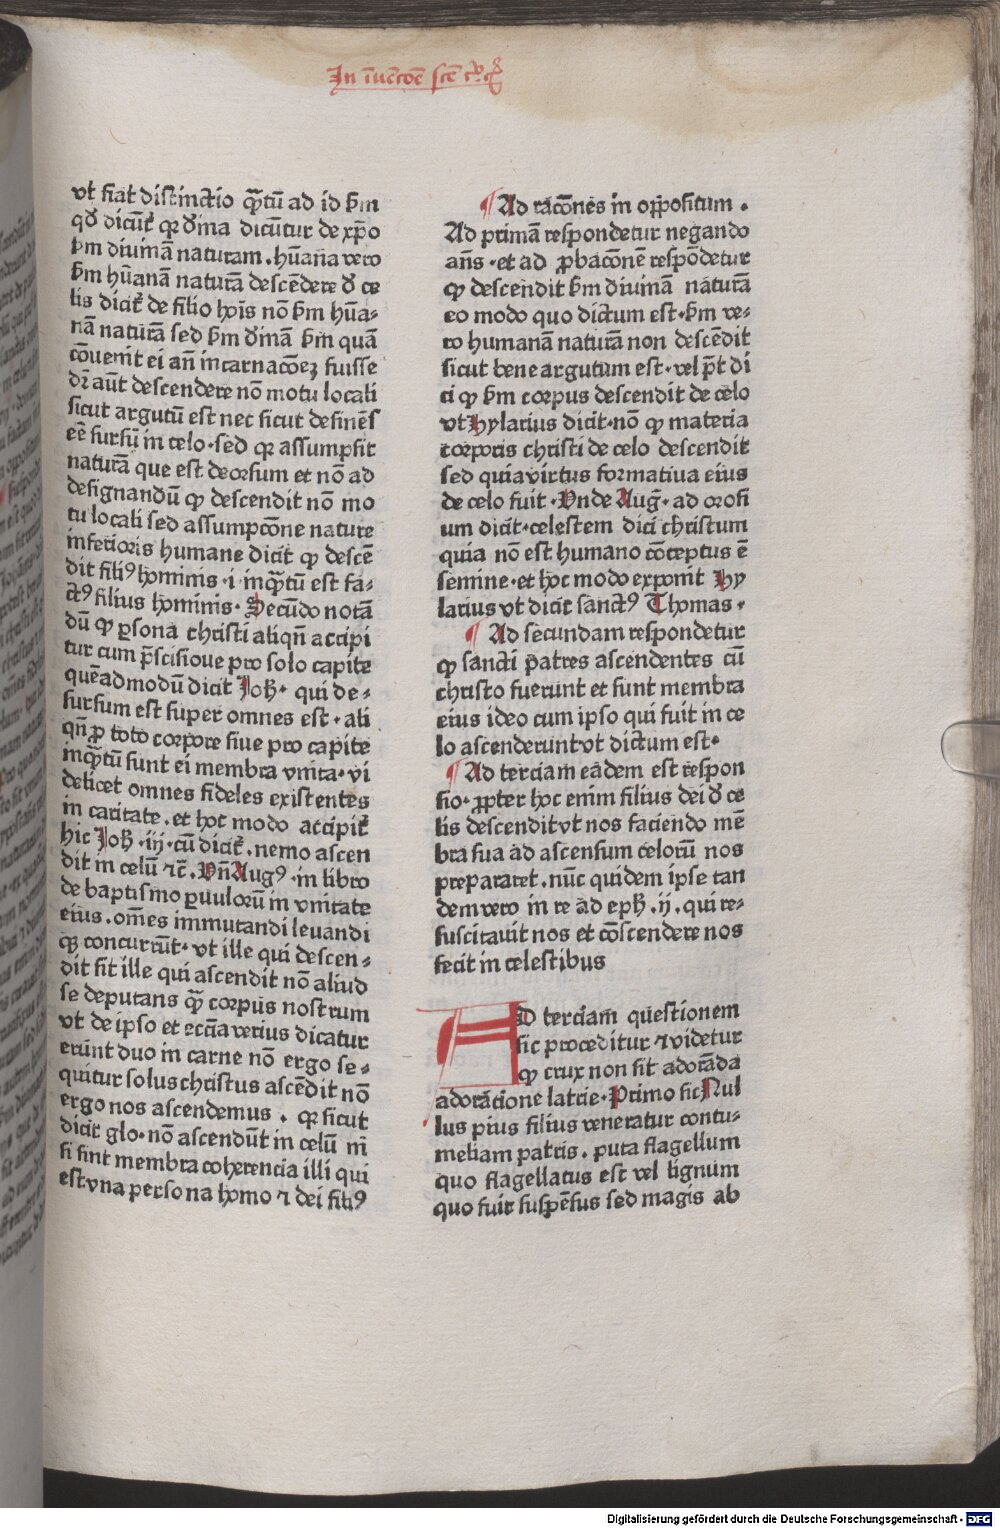 In īuēcōe scē c᷑cꝭ
vt fiat distinctio qͣtū ad id ẜm
qđ dicūt᷑ qꝛ đma dicūtur de xp̄o
ẜm diuinā naturam . hūana vero
ẜm hūanā naturā descēdere đ ce
lis dicit᷑ de filio hoīs nō ẜm hūa-
nā naturā sed ẜm đinā ẜm quā
cōuenit ei an̄ incarnacōeꝫ fuisse
dꝛ̄ aūt descendere nō motu locali
sicut argutū est nec sicut desinēs
eē sursū in celo · sed qꝛ assumpsit
naturā que est deorsum et nō ad
designandū ꝙ descendit nō mo
tu locali sed assumpcōne nature
inferioris humane dicit ꝙ descē
dit filiꝰ hominis · i · inqͣtū est fa-
ctꝰ filius hominis · Secūdo notā
dū ꝙ ꝑsona christi aliqn̄ accipi
tur cum p̄scisioue pro solo capite
quēadmodū dicit Joh̄ · qui de-
sursum est super omnes est · ali
qn̄ ꝓ toto corpore siue pro capite
inqͣtū sunt ei membra vnita · vi
delicet omnes fideles existentes
in caritate . et hoc modo accipit᷑
hic Joh̄ · iij · cū dicit᷑ . nemo ascen
dit in celū ⁊c̄ . Vn̄ Augꝰ · in libro
de baptismo ꝑuulorū in vnitate
eius . om̄es immutandi leuandi
qꝫ concurrūt · vt ille qui descen-
dit sit ille qui ascendit nō aliud
se deputans qͣꝫ corpus nostrum
vt de ipso et eccīa verius dicatur
erūnt duo in carne nō ergo se-
quitur solus christus ascēdit nō
ergo nos ascendemus . qꝛ sicut
dicit glo · nō ascendūt in celū ni
si sint membra coherencia illi qui
est vna persona homo ⁊ dei filiꝰ
Ad racōnes in opp̄ositum .
Ad primā respondetur negando
an̄s · et ad ꝓbacōnē respōdetur
ꝙ descendit ẜm diuinā naturā
eo modo quo dictum est · ẜm ve-
ro humanā naturā non descēdit
sicut bene argutum est · vel p̄t di
ci ꝙ ẜm corpus descendit de celo
vt Hylarius dicit · nō ꝙ materia
corporis christi de celo descendit
sed quia virtus formatiua eius
de celo fuit · Vnde Aug̃ · ad orosi
um dicit · celestem dici christum
quia nō est humano cōceptus ē
semine · et hoc modo exponit Hy
larius vt dicit sanctꝰ Thomas ·
Ad secundam respondetur
ꝙ sancti patres ascendentes cū
christo fuerunt et sunt membra
eius ideo cum ipso qui fuit in ce
lo ascenderunt vt dictum est ·
Ad terciam eadem est respon
sio · ꝓpter hoc enim filius dei đ ce
lis descendit vt nos faciendo mē
bra sua ad ascensum celorū nos
prepararet . nūc quidem ipse tan
dem vero in re ad eph̄ . ij . qui re-
suscitauit nos et cōscendere nos
fecit in celestibus
AD terciam questionem
sic proceditur ⁊ videtur
ꝙ crux non sit adorāda
adoracione latrie · Primo sic Nul
lus pius filius veneratur contu-
meliam patris . puta flagellum
quo flagellatus est vel lignum
quo fuit suspensus sed magis ab
Digitalisierung gefördert durch die Deutsche Forschungsgemeinschaft - DFG